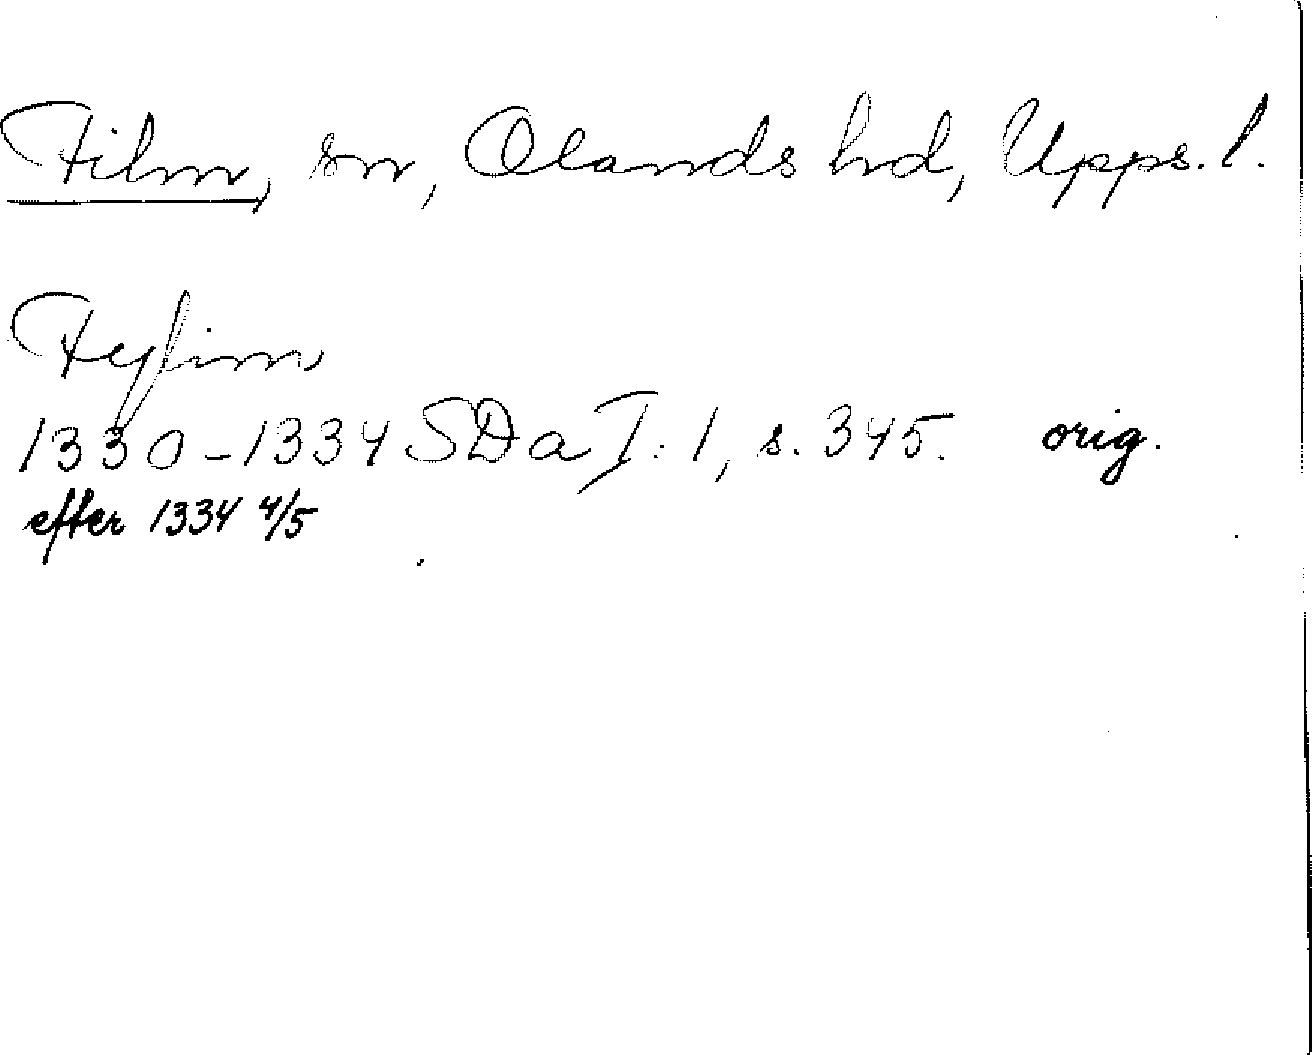 Film, sn, Olands hd, Upps. l.
Fyfim
1330-1334 SDa I: 1, s. 345. orig.
efter 1334 4/5